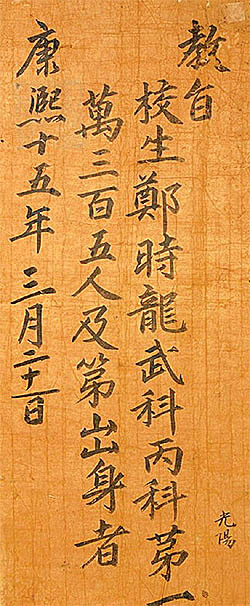 敎旨
光陽
校生鄭時龍武科丙科第一
萬三百五人及第出身者
康熙十五年三月二十一日